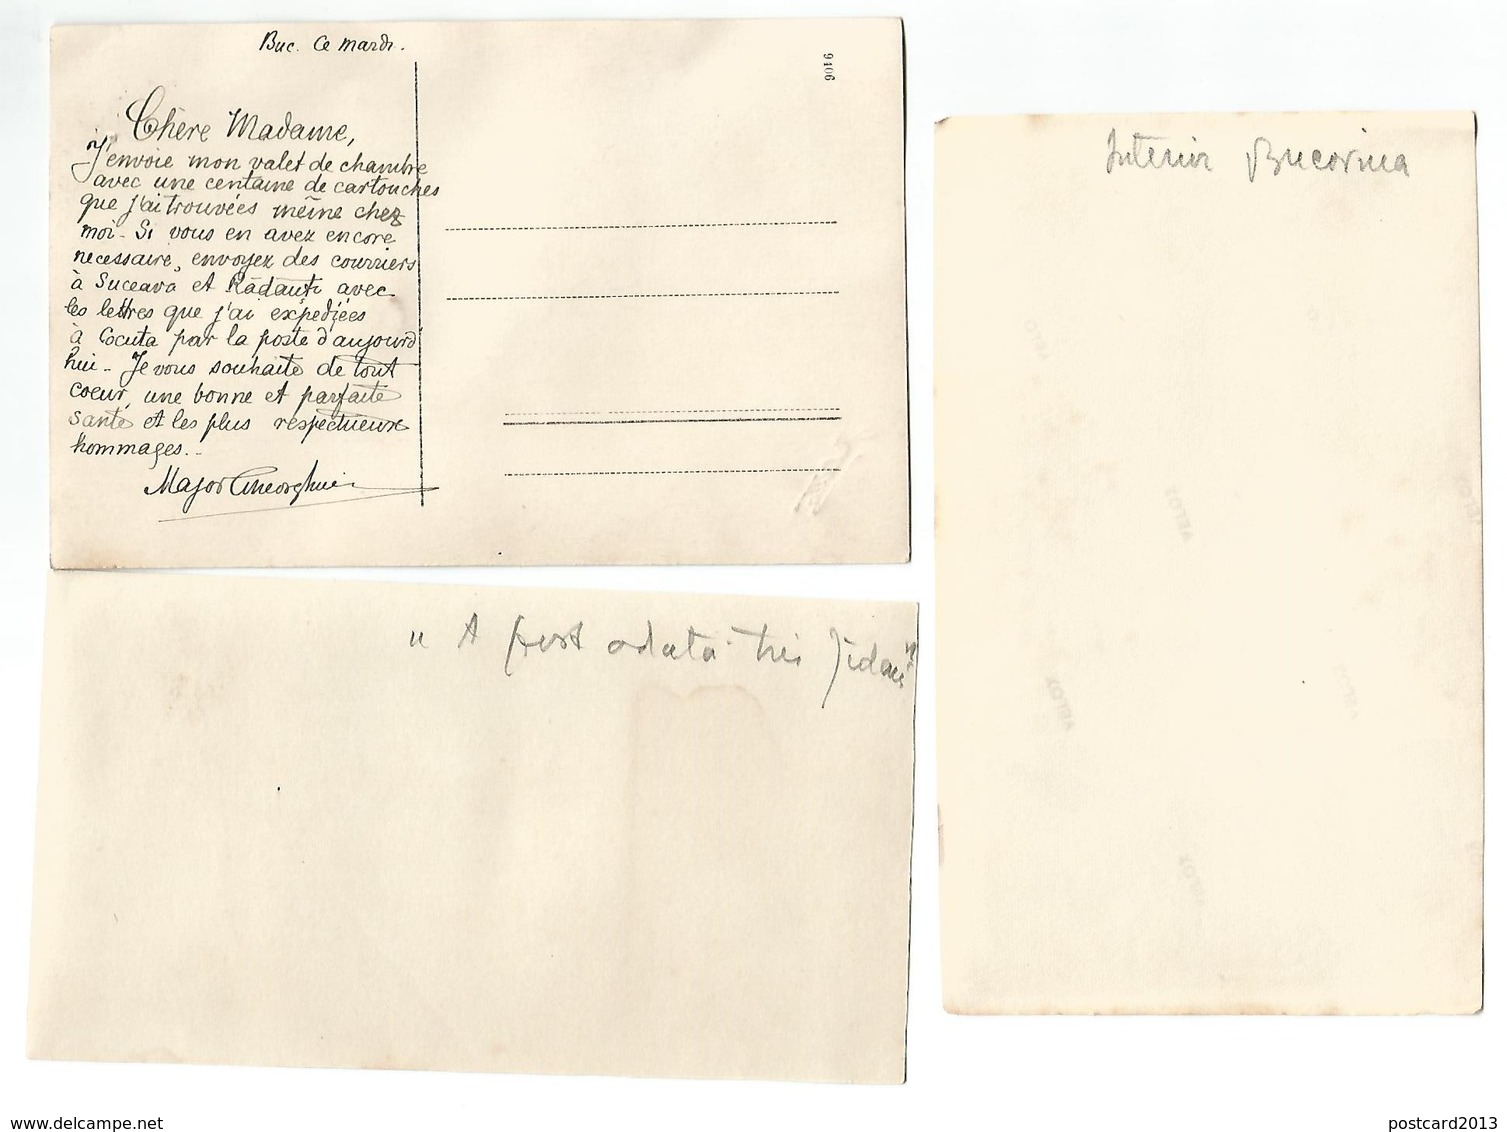 Buc. Ce mardi.
9106
Chère Madame,
J'envoie mon valet de chambre
avec une centaine de cartouches
que j'ai trouvées même chez
moi - Si vous en avez encore
necessaire, envoyez des courriers
à Suceava et Rădăuti avec
les lettres que j'ai expediées
à Cocuta par la poste d'aujourd'
hui - Je vous souhaite de tout
coeur, une bonne et parfaite
santé et les plus respectueux
hommages. -
Major Gheorghiu
Interior Bucovina
VELOX
VELOX
VELOX
"A fost odata trei Jidani"
www.delcampe.net
postcard2013